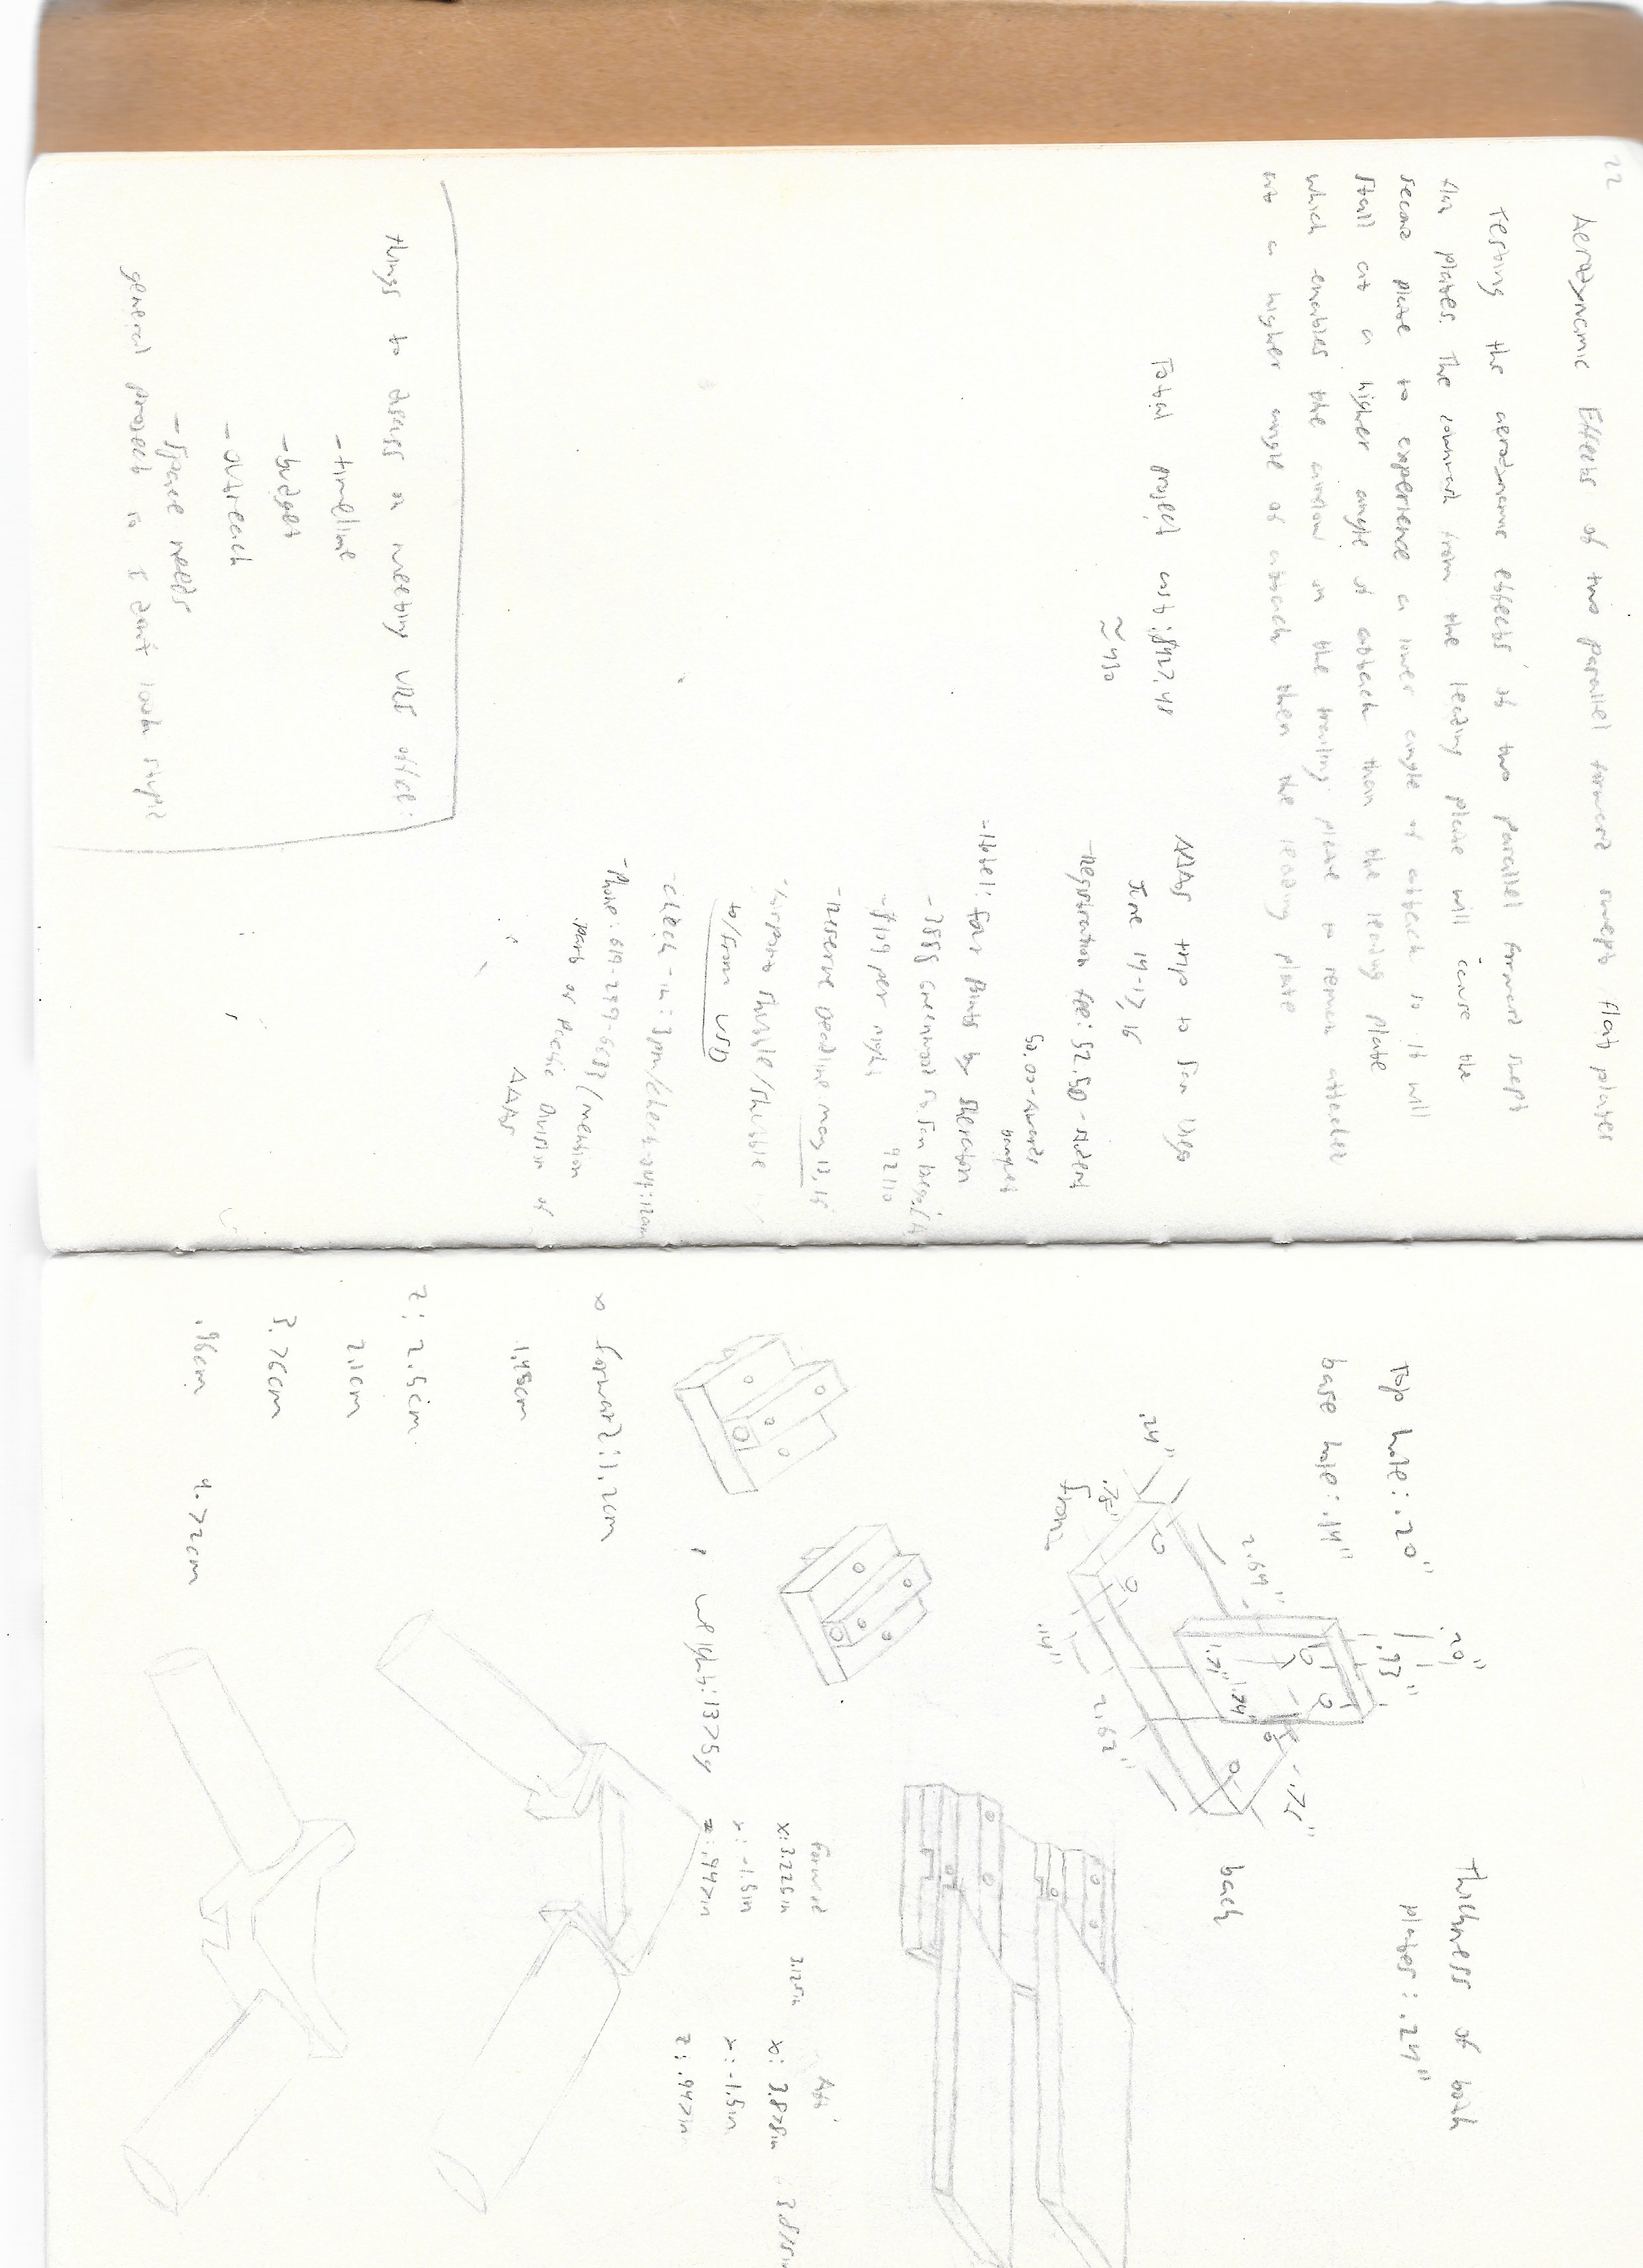 22
Aerodynamic Effects of two parallel forward swept flat plates
Testing the aerodynamic effects of two parallel forward swept
flat plates. The downwash from the leading plate will cause the
second plate to experience a lower angle of attack so it will
stall at a higher angle of attack than the leading plate
which enables the airflow on the trailing plate to remain attached
at a higher angle of attack then the leading plate
Total project cost: $427.48
≈430
AAAS trip to San Diego
June 14-17, 16
-Registration fee: 52.50 - student
50.00 - Awards
banquet
-Hotel: Four Points by Sheraton
-3888 Greenwood St San Diego, CA
92110
-$109 per night
-Reserve Deadline May 13, 16
-Airport shuttle/shuttle
to/from USD
-check-in: 3pm/check-out: 12am
-Phone: 619-299-6633 (mention
part of Pacific Division of
AAAS
things to discuss on meeting URI office:
-timeline
-budget
-outreach
-space needs
general project so I don't look stupid
Top hole: .20"
base hole: .14"
.20"
.93"
Thickness of both
plates: .24"
2.64"
.75"
1.71"
1.74"
back
.24"
.75"
front
.14"
2.62"
Forward
x: 3.225in
3.125in
y: -1.5in
z: .947in
Aft
x: 3.878in
y: -1.5in
z: .947in
weight: 1375g
x forward: 1.2cm
1.45cm
z: 2.5cm
2.1cm
3.76cm
.96cm 4.72cm